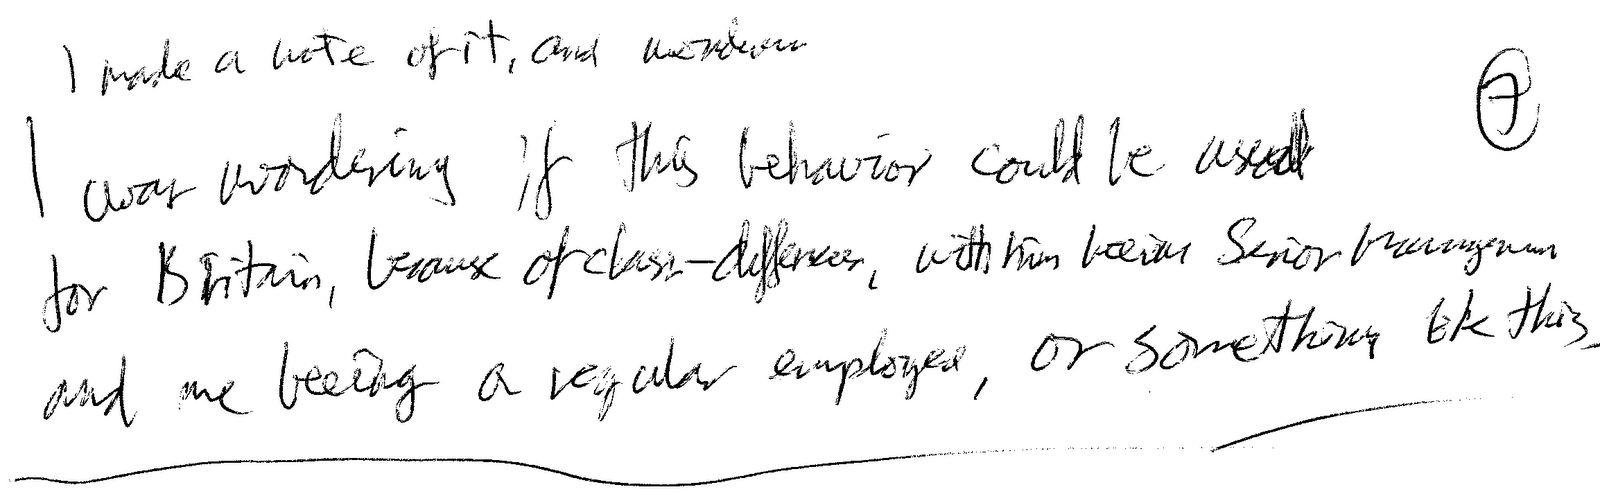 I made a note of it, and
I was wondering if this behavior could be used
for Britain, because of class-differences, with him beeing Senior Management
and me beeing a regular employee, or something like this